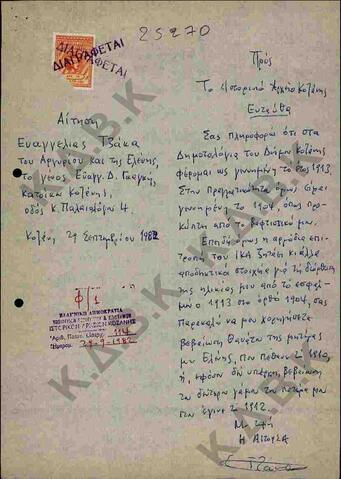 25270
ΔΙΑΓΡΑΦΕΤΑΙ
ΔΙΑΓΡΑΦΕΤΑΙ
Αίτηση
Ευαγγελίας Τζίκα
του Αργυρίου και της Ελένης,
το γένος Ευάγγ. Δ. Γκαγκή,
κατοίκου Κοζάνης,
οδός Κ. Παλαιολόγου 4.
Κοζάνη, 29 Σεπτεμβρίου 1982
Φ 1
ΕΛΛΗΝΙΚΗ ΔΗΜΟΚΡΑΤΙΑ
ΙΣΤΟΡΙΚΟΝ ΑΡΧΕΙΟΝ ΚΟΖΑΝΗΣ
Αριθ. Πρωτ. 114
29-9-1982
Πρός
Το Ιστορικό Αρχείο Κοζάνης
Ενταύθα
Σας πληροφορώ ότι στα
Δημοτολόγια του Δήμου Κοζάνης
φέρομαι ως γεννημένη το έτος 1913.
Στην πραγματικότητα όμως είμαι
γεννημένη το 1904, όπως προ-
κύπτει από το βαφτιστικό μου.
Επειδή όμως η αρμόδια επι-
τροπή του ΙΚΑ ζητάει κι άλλα
αποδεικτικά στοιχεία για τη διόρθωση
της ηλικίας μου από το εσφαλ-
μένο 1913 στο ορθό 1904, σας
παρακαλώ να μου χορηγήσετε
βεβαίωση θανάτου της μητέρας
μου Ελένης, που πέθανε το 1910,
ή, εφόσον δεν υπάρχει, βεβαίωση
του δεύτερου γάμου του πατέρα μου
που έγινε το 1912.
Με τιμή
Η Αιτούσα
Κ.Δ.Β.Κ
Κ.Δ.Β.Κ